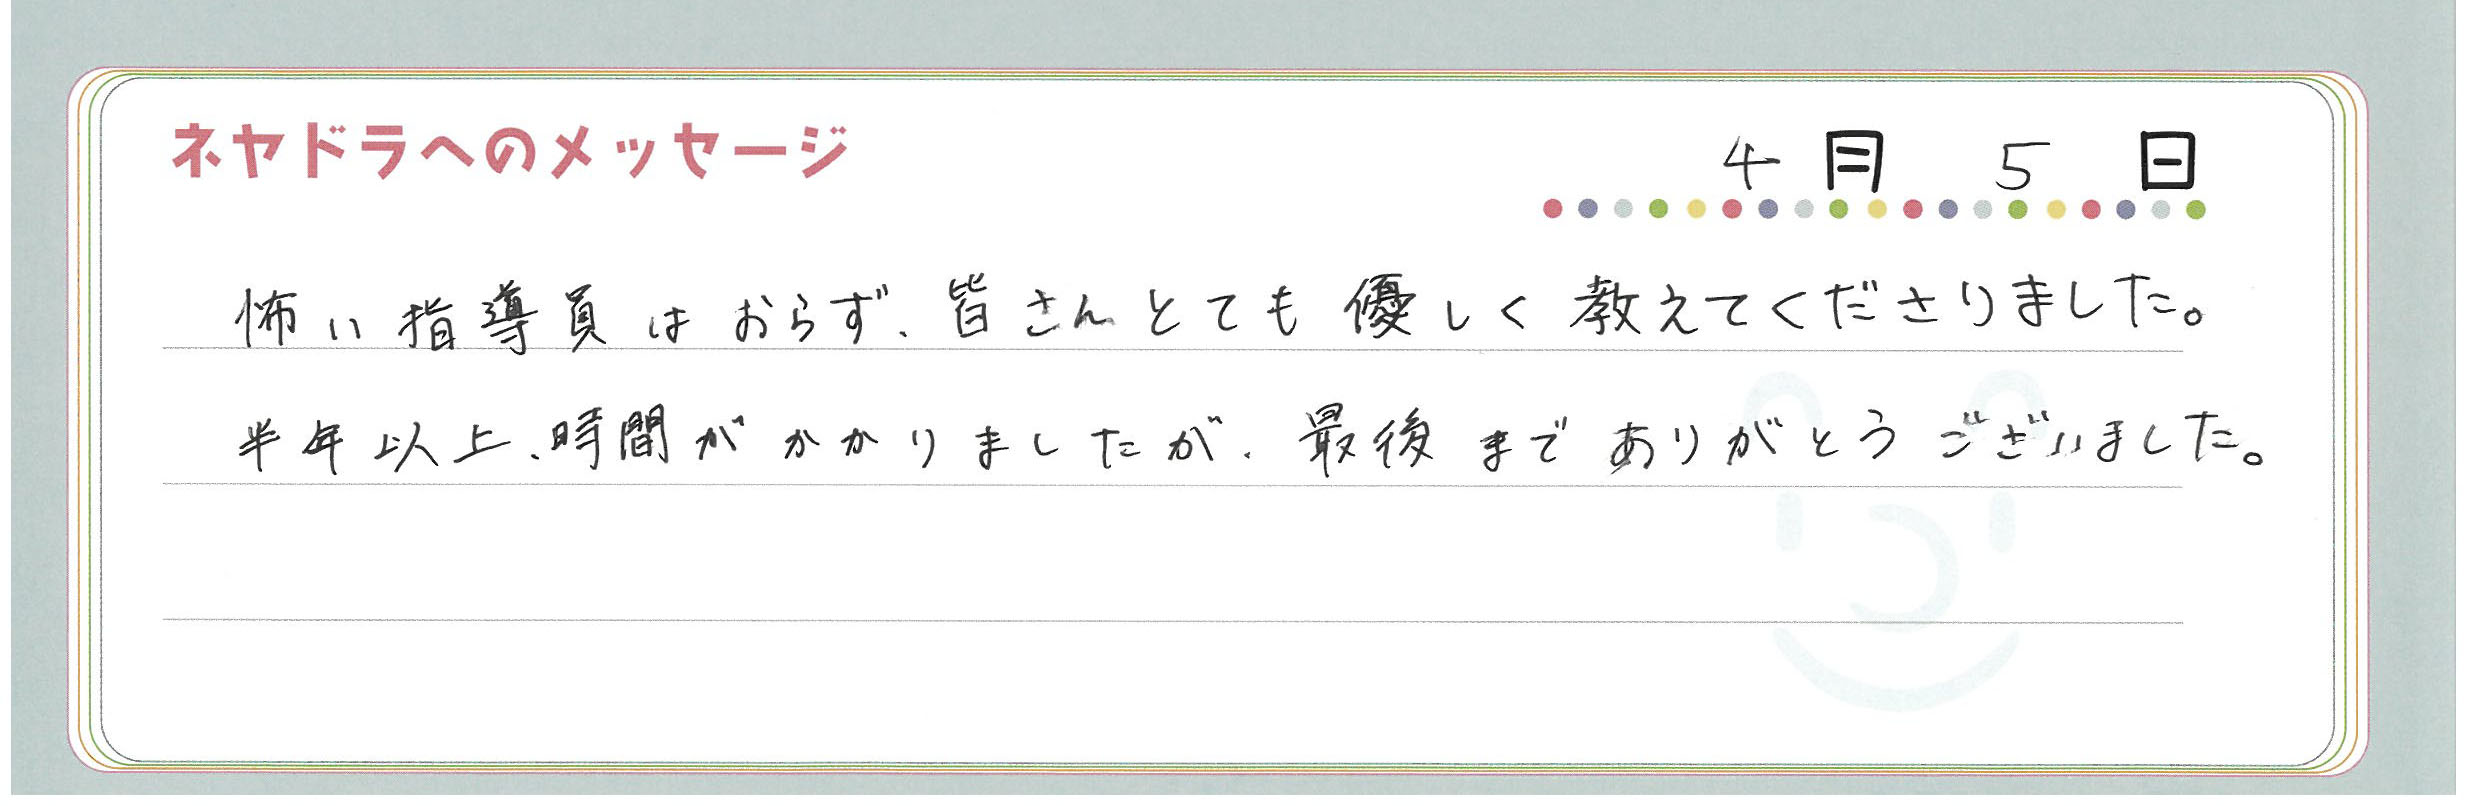 ネヤドラへのメッセージ
4月 5日
怖い指導員はおらず、皆さんとても優しく教えてくださりました。
半年以上、時間がかかりましたが、最後までありがとうございました。